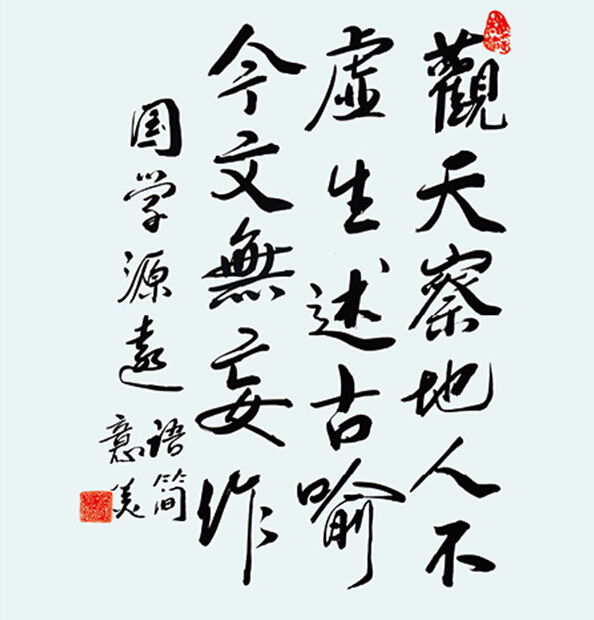 觀天察地人不
虚生述古喻
今文無妄作
国学源遠
语简
意美